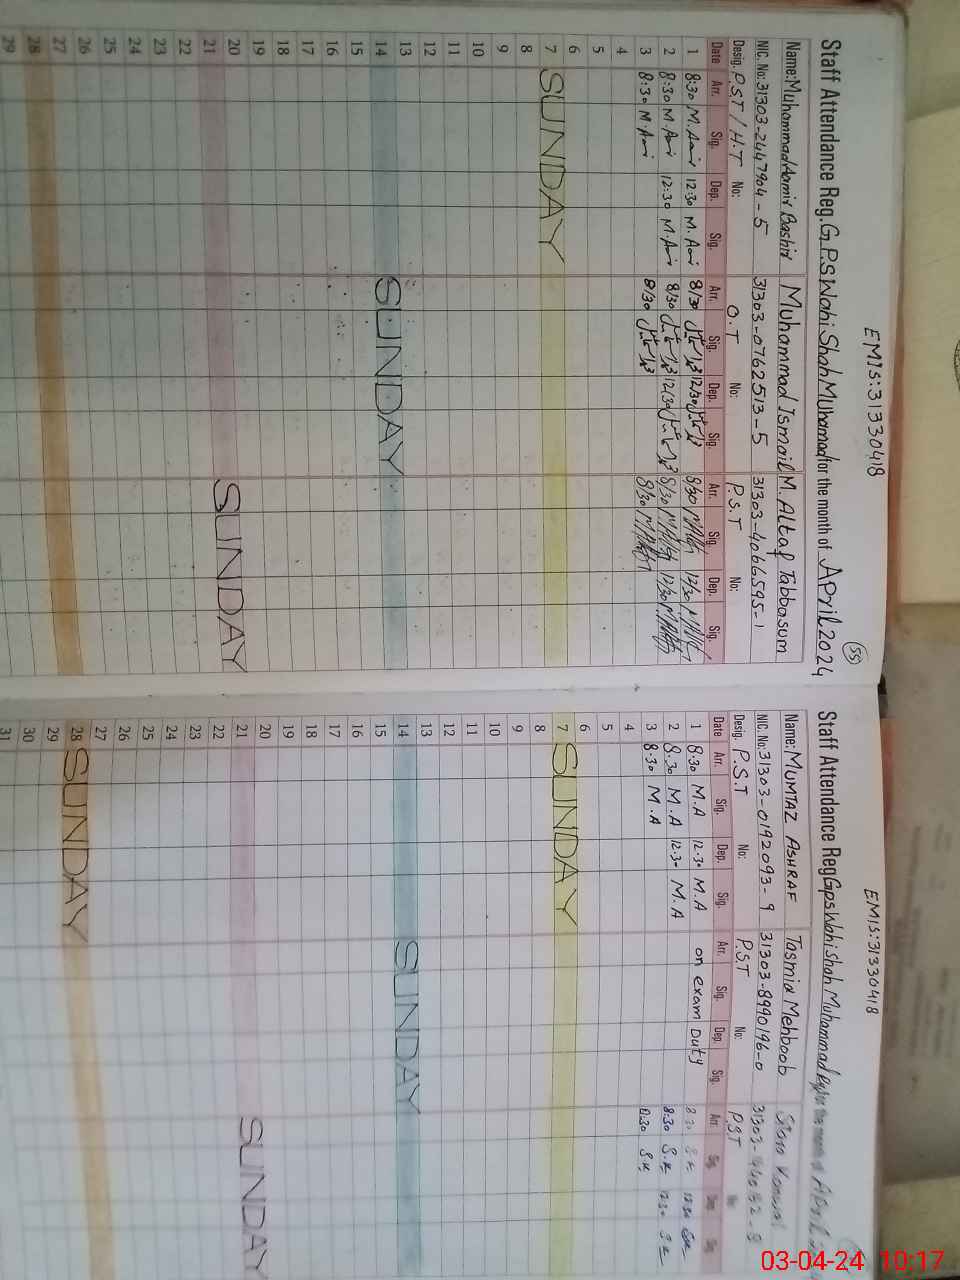 EMIS:31330418
55
Staff Attendance Reg. G.P.S Wahi Shah Muhamad for the month of April 2024
Name: Muhammad Aamir Bashir Muhammad Ismail M. Altaf Tabbasum
NIC. No: 31303-2447904-5 31303-0762513-5 31303-4066595-1
Desig. P.S.T / H.T No: O.T No: P.S.T No:
Date Arr. Sig. Dep. Sig. Arr. Sig. Dep. Sig. Arr. Sig. Dep. Sig.
1 8:30 M.Aamir 12:30 M.Aamir 8/30 12/30 8/30 12/30
2 8:30 M.Aamir 12:30 M.Aamir 8/30 12/30 8/30 12/30
3 8:30 M.Aamir 8/30 8/30
4
5
6
7 SUNDAY
8
9
10
11
12
13
14 SUNDAY
15
16
17
18
19
20
21 SUNDAY
22
23
24
25
26
27
28
29
EMIS:31330418
Staff Attendance Reg Gps Wahi shah Muhammad for the month of April
Name: MUMTAZ ASHRAF Tasmia Mehboob Kanwal
NIC. No: 31303-0192093-9 31303-8990196-0
Desig. P.S.T No: P.S.T No: P.S.T No:
Date Arr. Sig. Dep. Sig. Arr. Sig. Dep. Sig. Arr. Sig. Dep. Sig.
1 8:30 M.A 12:30 M.A on exam Duty 8:30 S.K 12:30 S.K
2 8:30 M.A 12:30 M.A 8:30 S.K 12:30 S.K
3 8:30 M.A 8:30 S.K
4
5
6
7 SUNDAY
8
9
10
11
12
13
14 SUNDAY
15
16
17
18
19
20
21 SUNDAY
22
23
24
25
26
27
28 SUNDAY
29
30
31
03-04-24 10:17